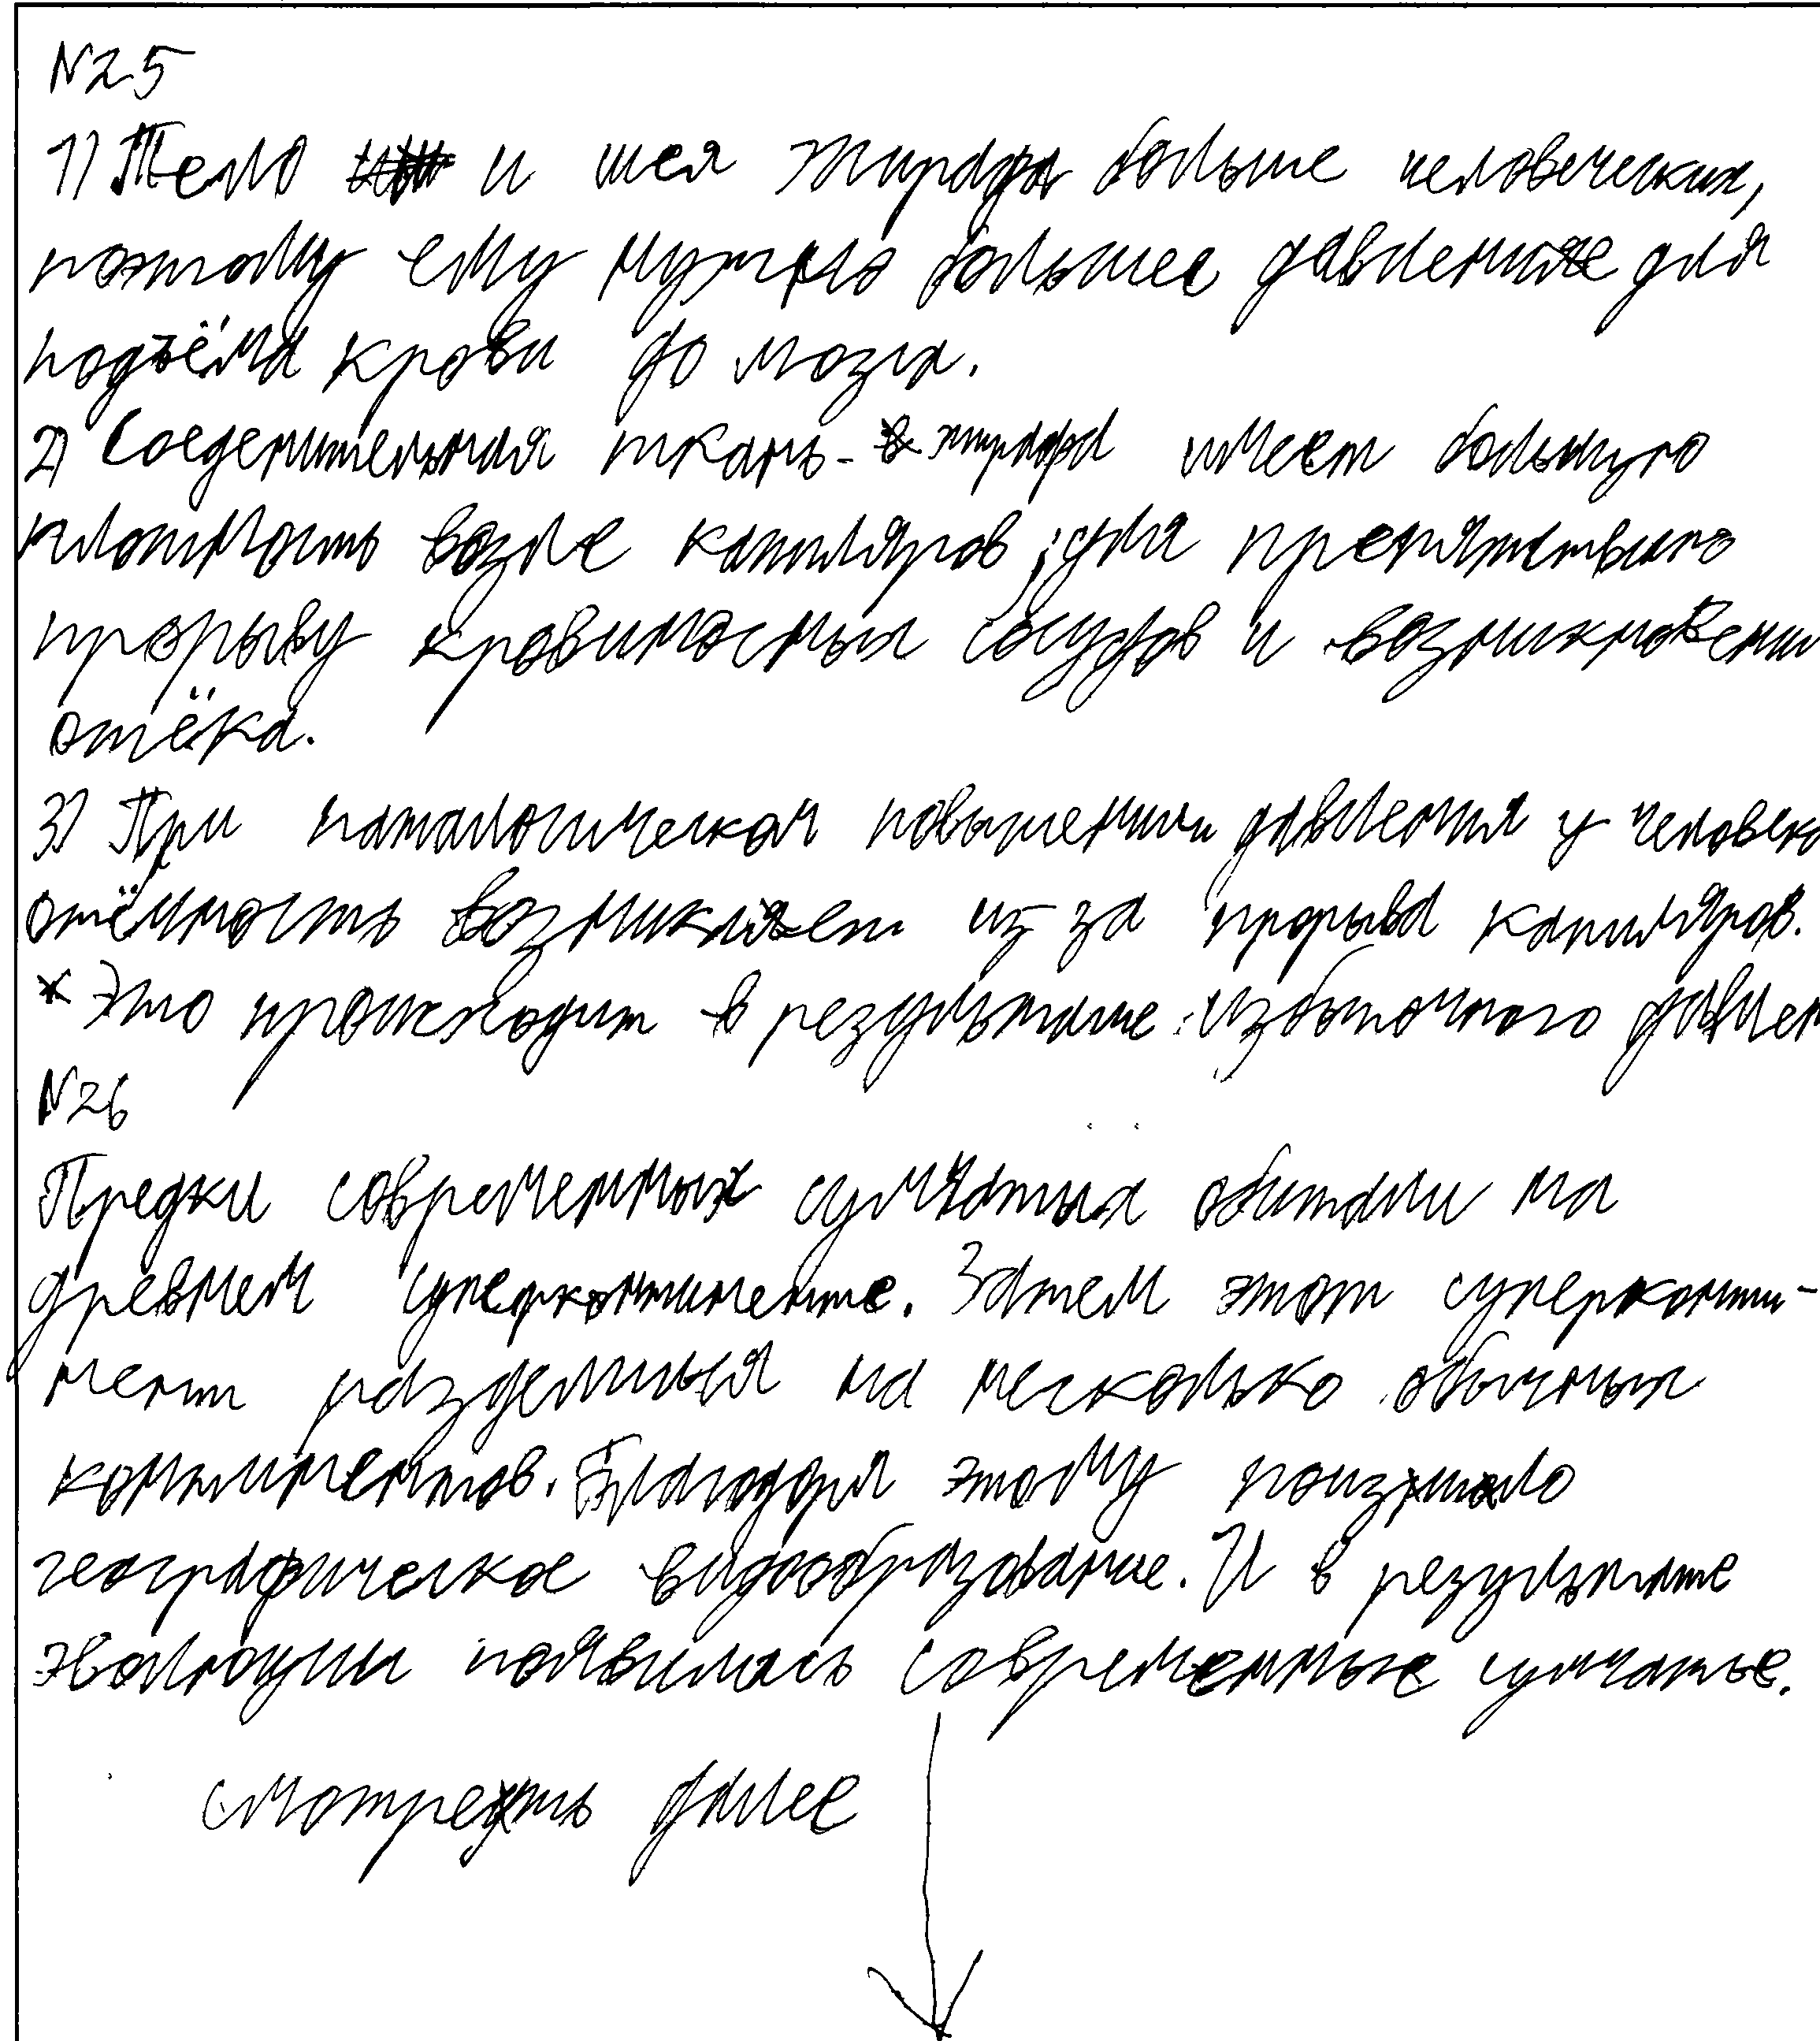 N25
1) Тело и шея жирафа больше человеческих,
поэтому ему нужно большее давление для
подъёма крови до мозга.
2) Соеденительная ткань жирафа имеет большую
плотность возле капиляров, для препятствию
прорыву кровиносных сосудов и возникновени
отёка.
3) При паталогическом повышении давления у человека
отёчность возникает из за прорыва капиляров.
* Это происходит в результате избыточного давлен
N26
Предки современных сумчатых обитали на
древнем суперконтиненте. Затем этот суперконти-
нент разделился на несколько обычных
континентов. Благодоря этому
географическое видообразование. И в результате
эволюции появились современные сумчатые.
смотреть далее